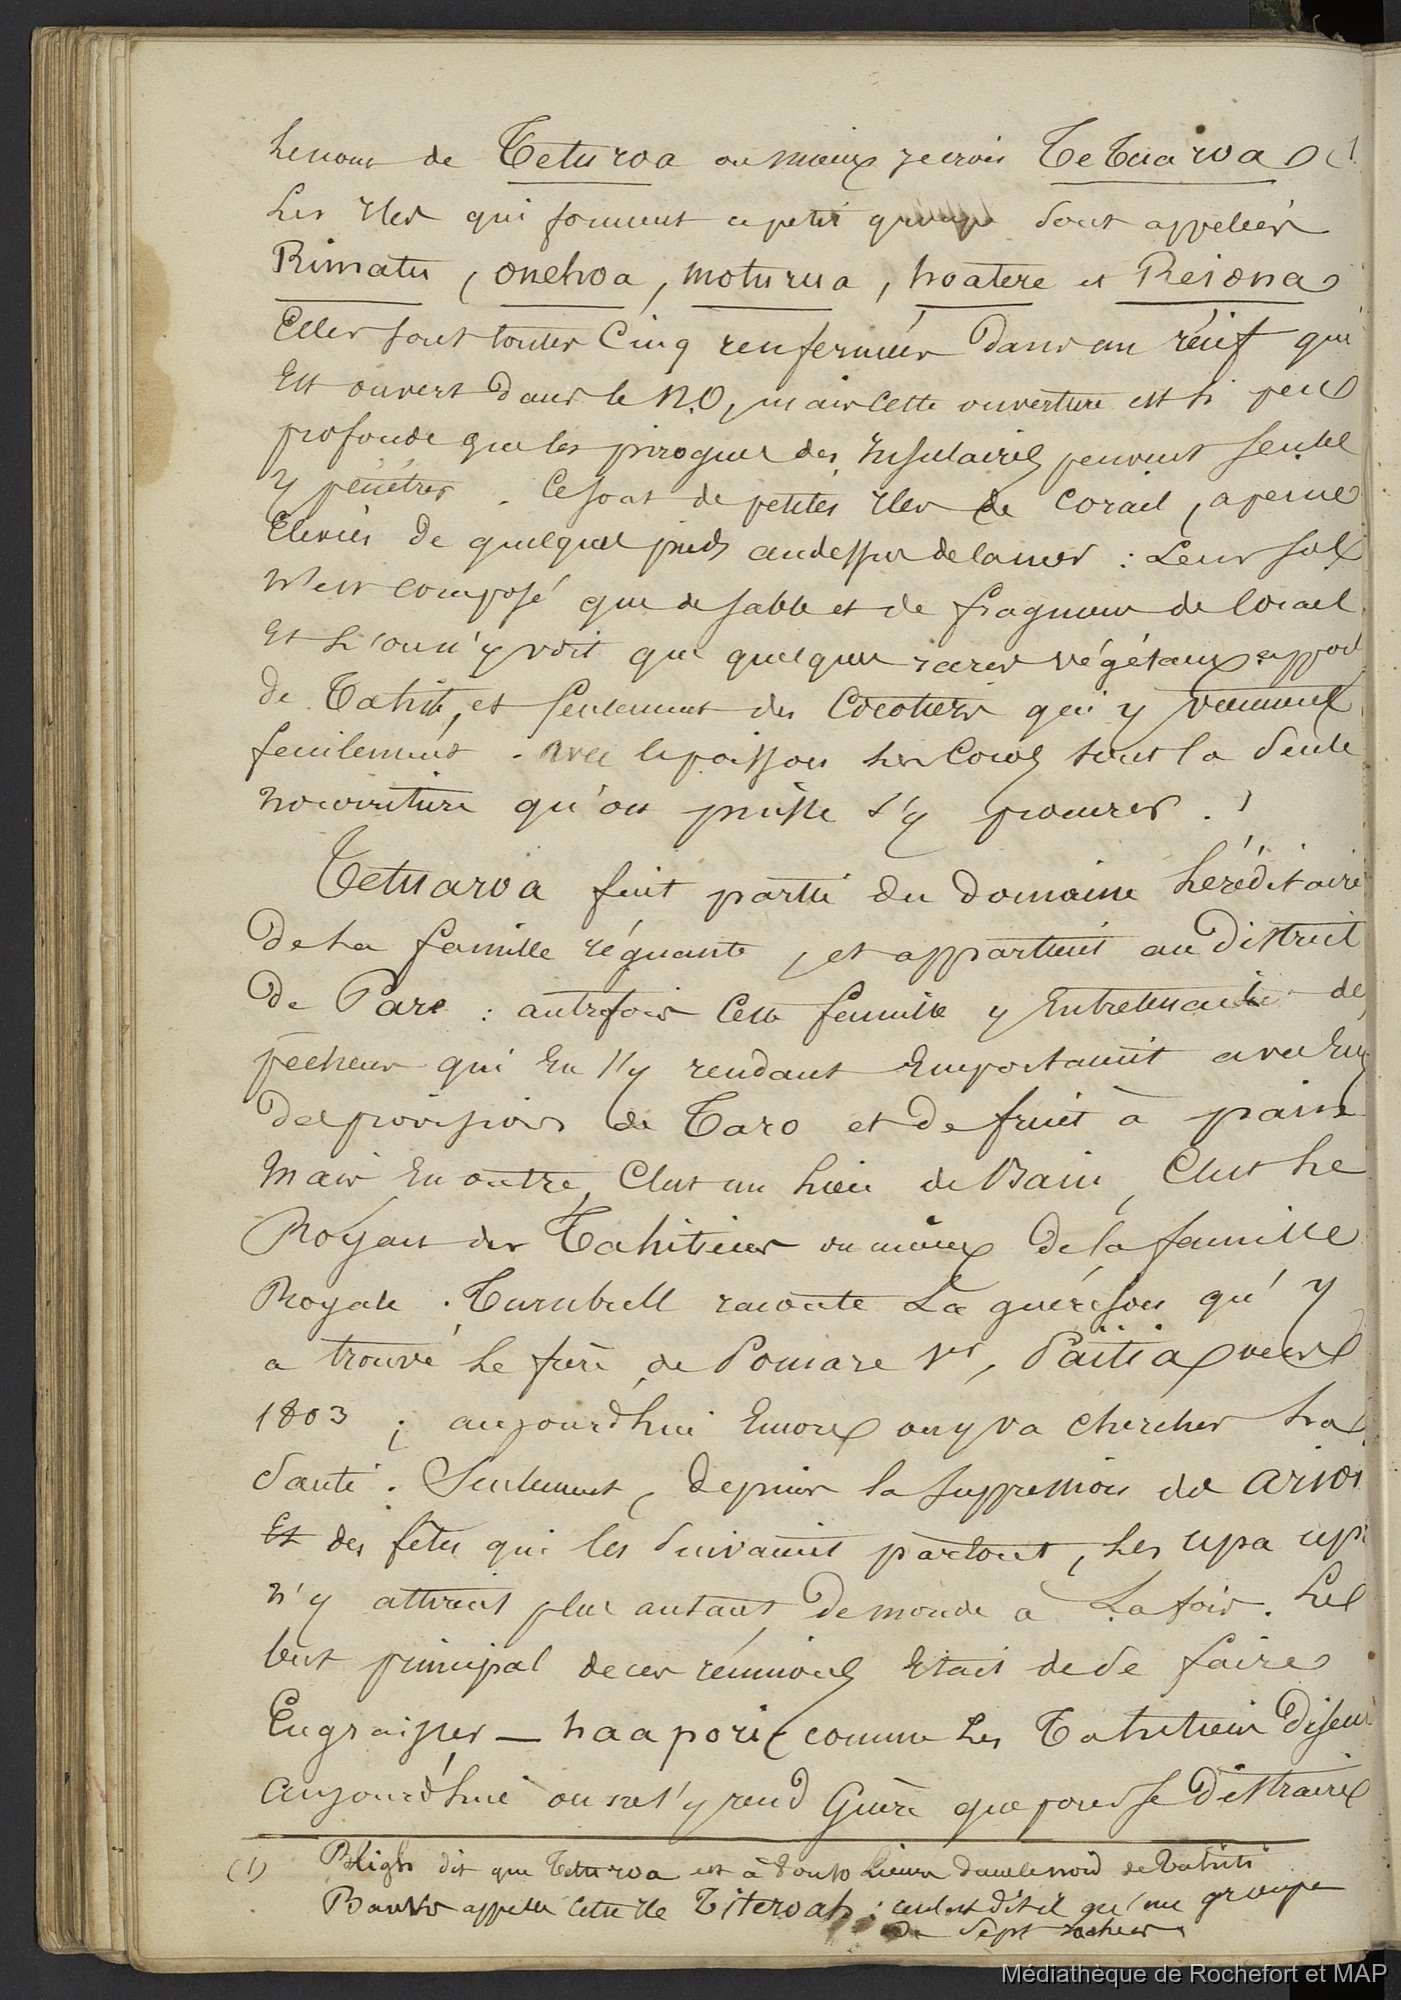 le nom de Teturoa ou mieux je crois Tetuaroa (1
Les Iles qui forment ce petit groupe sont appelées
Rimatu, onehoa, moturua, hoatere et Reiona
Elles sont toutes Cinq renfermées dans un récif qui
Est ouvert dans le N.O, mais cette ouverture est si peu
profonde que les pirogues des Insulaires peuvent seules
y pénétrer. Ce sont de petites Iles de Corail, a peine
Elevées de quelques pieds audessus de la mer : Leur sol
n'est composé que de sable et de fragmens de Corail
Et l'on n'y voit que quelques rares végétaux apport
de Tahiti, et seulement des Cocotiers qui y viennent
facilement. Avec le poisson les Cocos sont la seule
nourriture qu'on puisse s'y procurer.
Tetuaroa fait partie du domaine héréditaire
De la famille régnante, et appartient au District
De Pare : autrefois Cette famille y Entretenait des
pêcheurs qui En s'y rendant Emportaient avec Eux
Des provisions de Taro et de fruit à pain
Mais En outre, C'est un lieu de Bain, C'est le
Royan des Tahitiens ou mieux de la famille
Royale. Turnbull raconte La guérison qu'y
a trouvé le frère de Pomare Ier, Paitia vers
1803 ; aujourd'hui Encore on y va chercher la
Santé. Seulement, depuis la suppression des arioi
Et des fêtes qui les suivaient partout, les upa upa
n'y attirent plus autant de monde à La fois. Le
but principal de ces réunions Etait de se faire
Engraisser — haapori comme les Tahitiens disent
Aujourd'hui on ne s'y rend Guère que pour se Distraire
(1) Bligh dit que Teturoa est à 8 ou 10 Lieues dans le nord de Tahiti
Banks appelle cette Ile Titeroah : ce n'est dit-il qu'un groupe
de sept rochers
Médiathèque de Rochefort et MAP